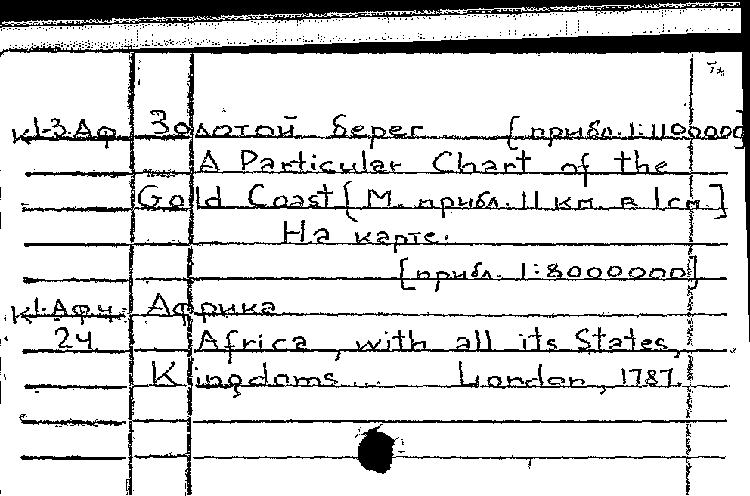 К1-3.Аф Золотой берег [прибл. 1:1100000]
A Particular Chart of the
Gold Coast [М. прибл. 11 км. в 1 см]
На карте.
[прибл. 1:8000000]
К1-Афр. Африка
24 Africa, with all its States,
Kingdoms... London, 1787.